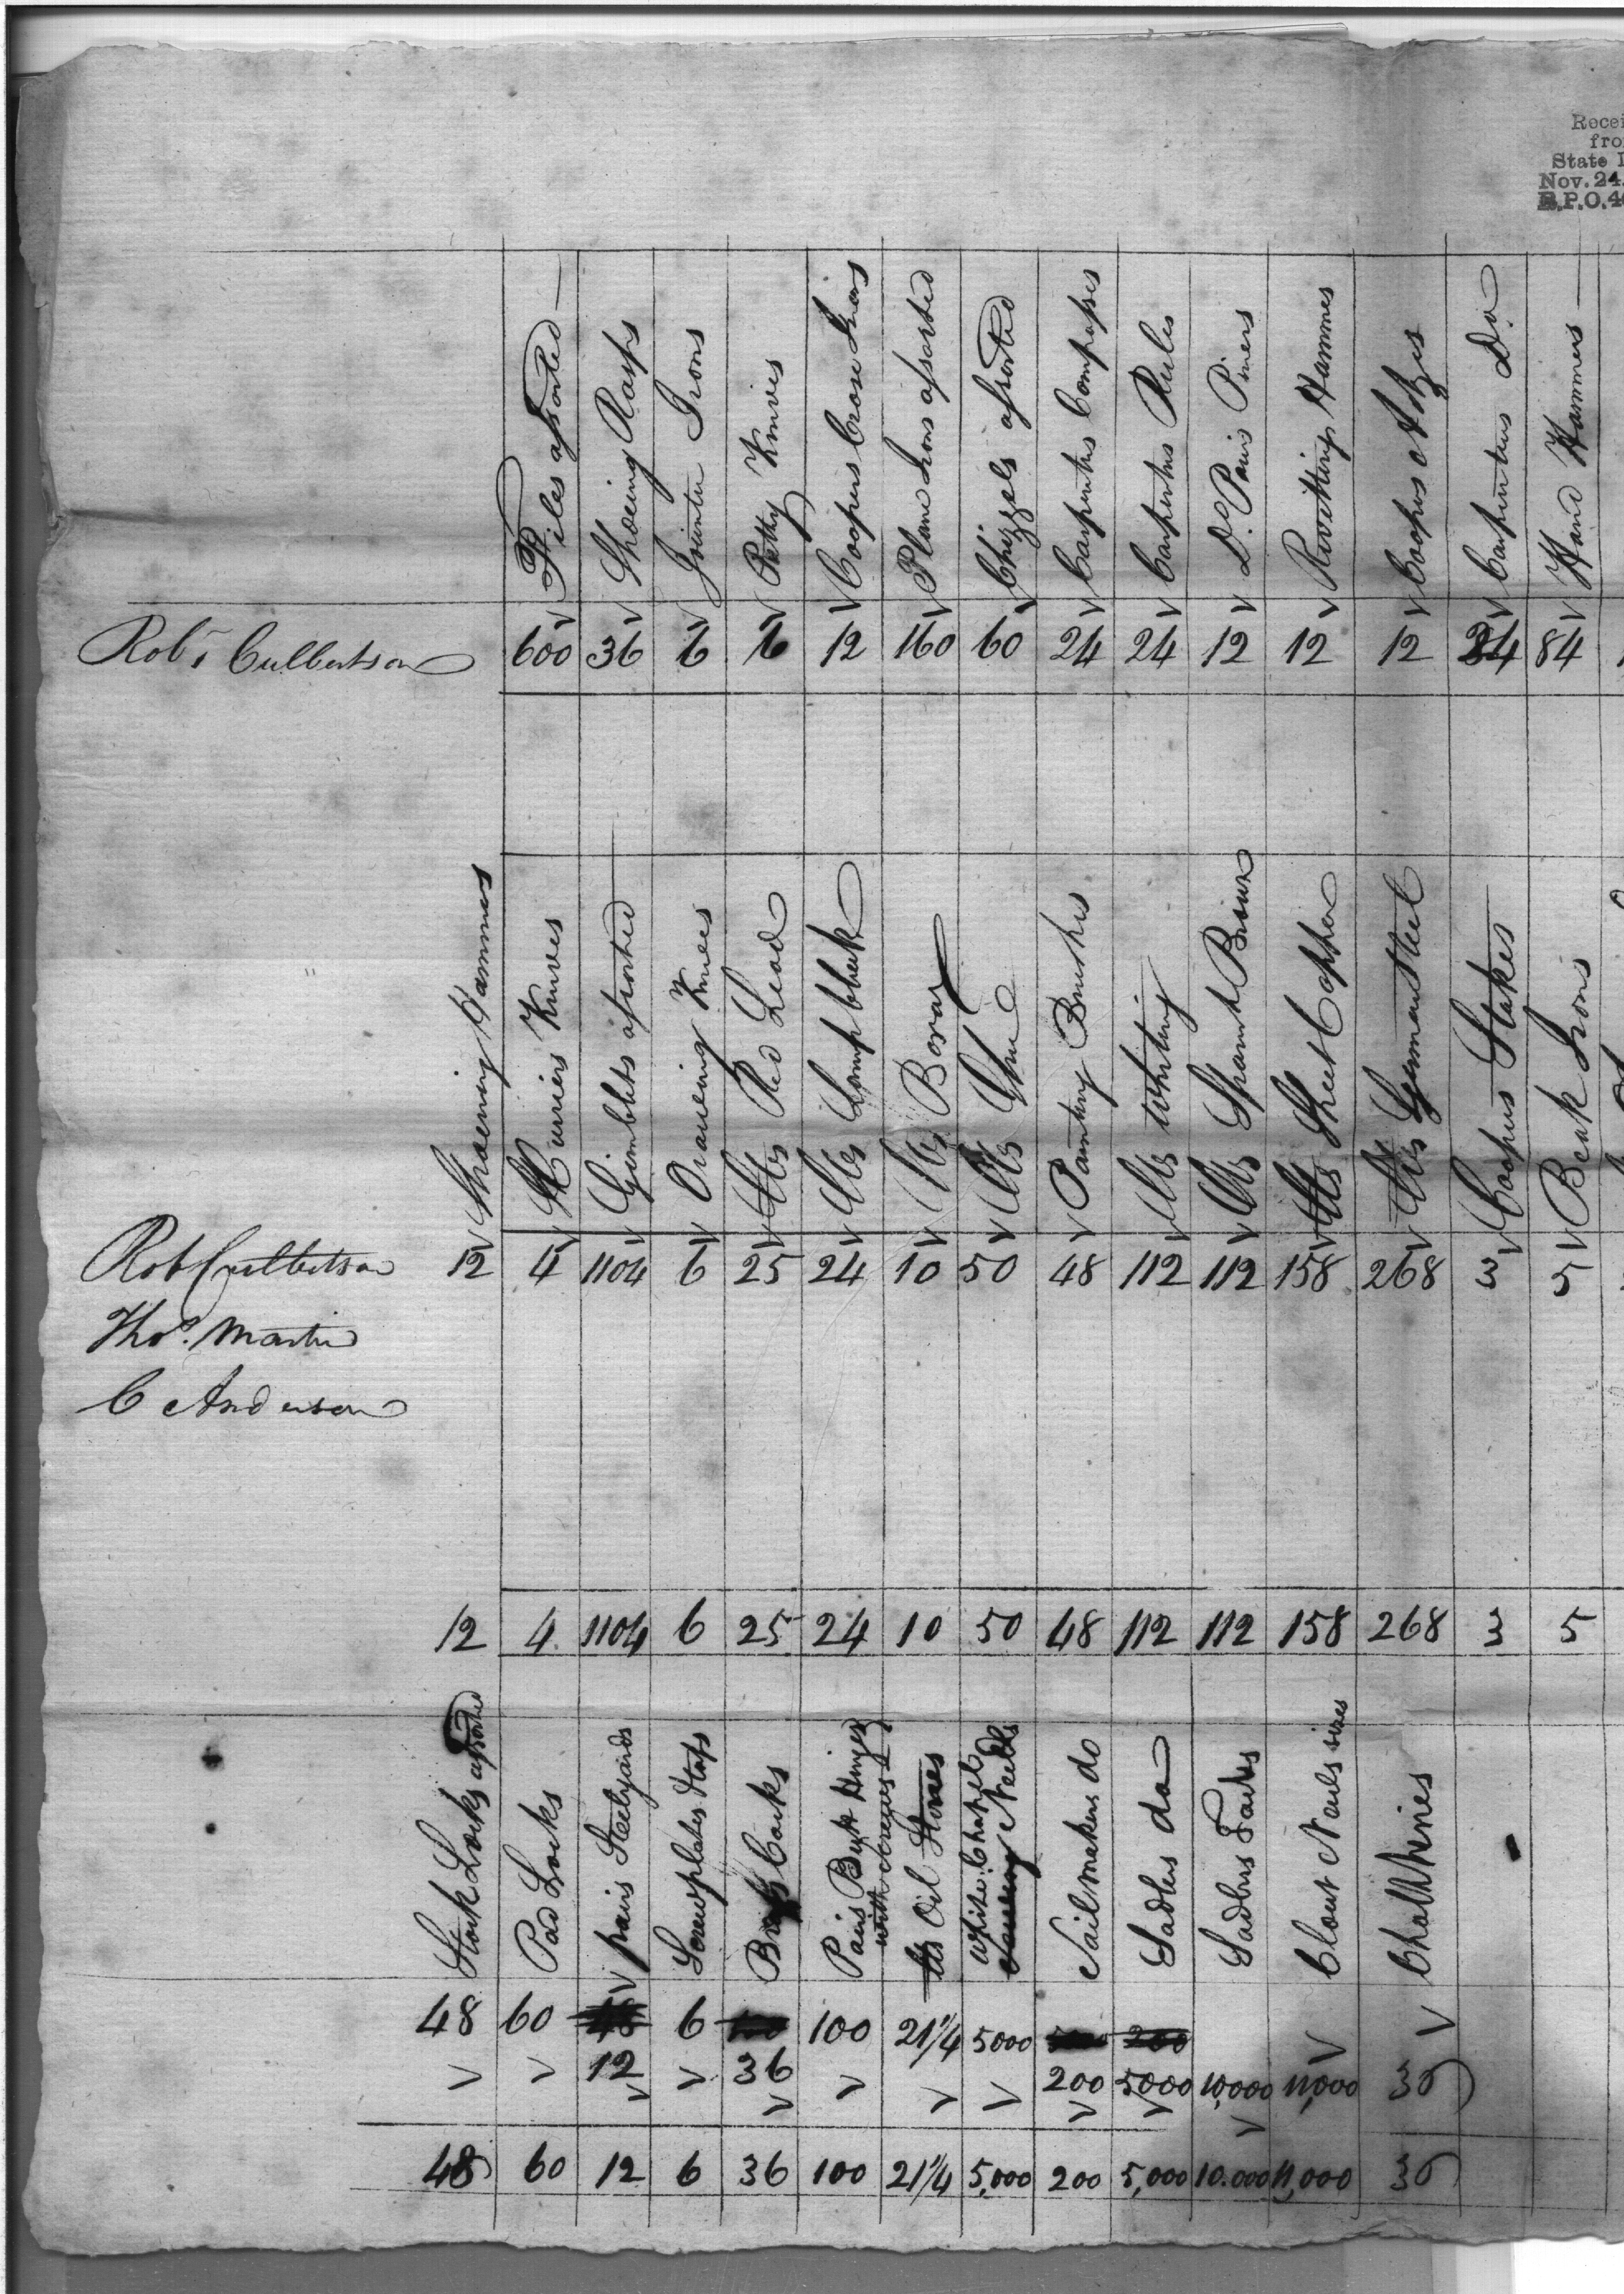 Recei
fro
State
Nov. 24
E.P.O. 4
Files assorted
Shoeing Rasps
Jointer Irons
Putty Knives
Coopers Crose Irons
Plane Irons assorted
Chizzels assorted
Carpenters Compasses
Carpenters Rules
Do Pairs Pincers
Rivitting Hammers
Coopers Adzes
Carpenters Do
Hand Hammers
Robt Culbertson 600 36 6 6 12 160 60 24 24 12 12 12 24 84
Shoeing Hammers
Curriers Knives
Gimblets assorted
Drawing Knives
lbs Red Lead
lbs Lampblack
lbs Borax
lbs Glue
Painting Brushes
lbs Whiting
lbs Spanish Brown
lbs Sheet Copper
lbs German Steel
Coopers Stakes
Beak Irons
Rob Culbertson 12 4 1104 6 25 24 10 50 48 112 112 158 268 3 5
Thos. Martin
C Anderson
12 4 1104 6 25 24 10 50 48 112 112 158 268 3 5
Stock Locks assorted
Pad Locks
pairs Steelyards
Screwplates & taps
Brass Cocks
Pairs Butt Hinges with screws
lbs Oil Stones
White Chapel Needls
Sailmakers do
Sadlers do
Sadlers Tacks
Clout Nails sizes
Chalk lines
48 60 6 100 21 1/4 5000 200
12 36 200 5000 10,000 11,000 36
48 60 12 6 36 100 21 1/4 5,000 200 5,000 10.000 11,000 36